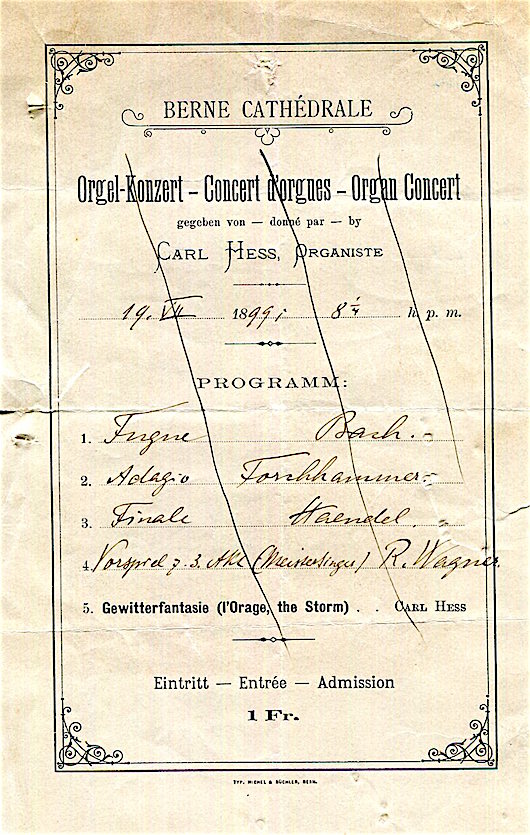 BERNE CATHÉDRALE
Orgel-Konzert – Concert d'orgues – Organ Concert
gegeben von — donné par — by
CARL HESS, ORGANISTE
19. VII 1899, 8 1/4 h. p. m.
PROGRAMM:
1. Fugue Bach.
2. Adagio Forchhammer
3. Finale Haendel.
4. Vorspiel z. 3. Akt (Meistersinger) R. Wagner
5. Gewitterfantasie (l'Orage, the Storm) . . CARL HESS
Eintritt — Entrée — Admission
1 Fr.
TYP. MICHEL & BÜCHLER, BERN.